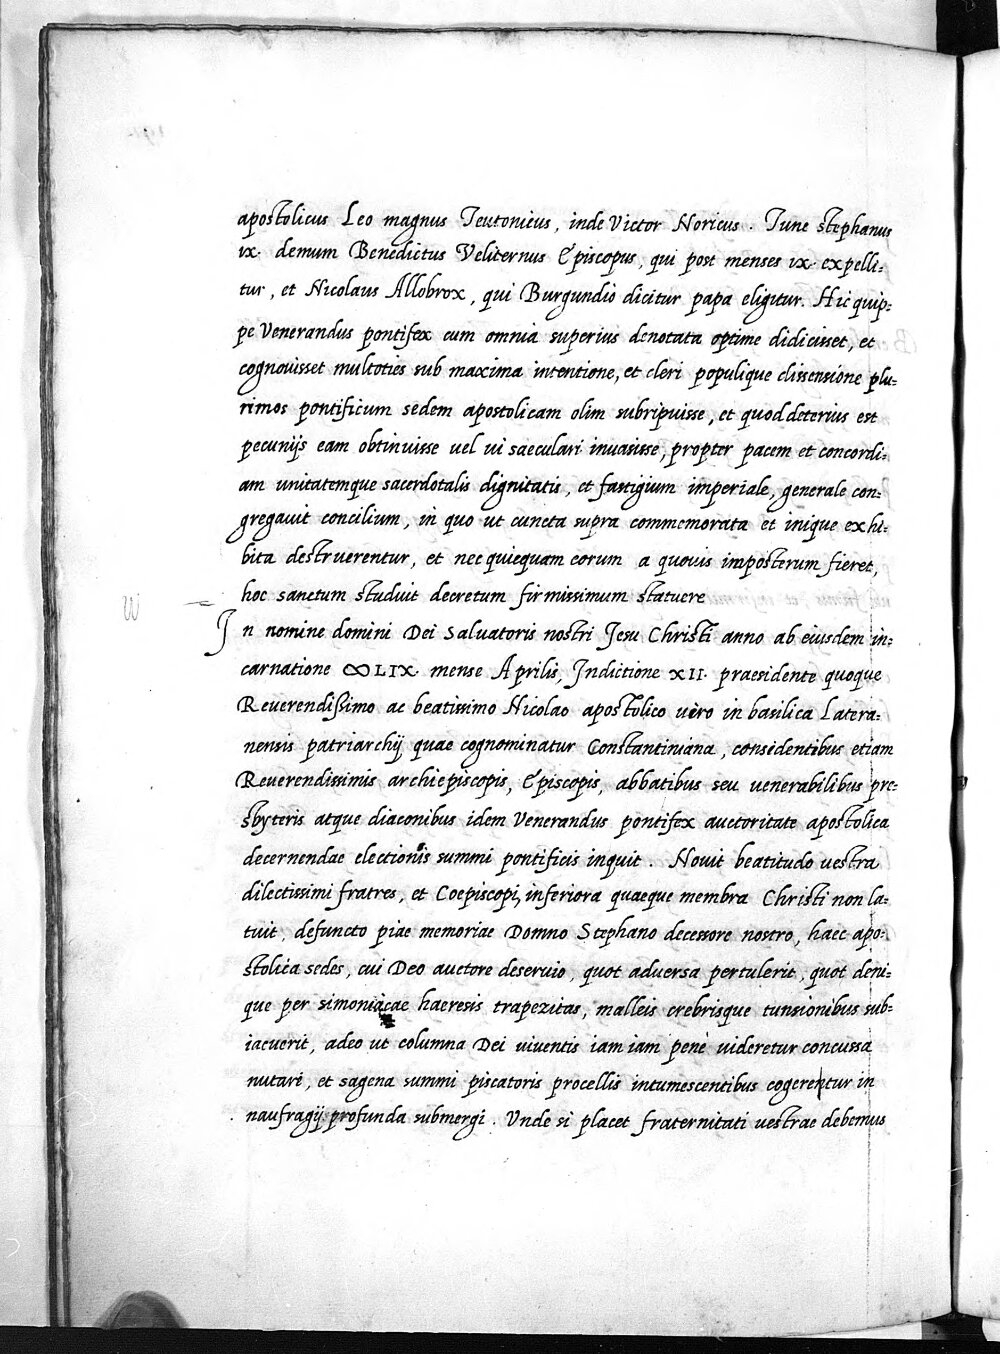 apostolicus Leo magnus Teutonicus, inde Victor Noricus. Tunc stephanus
ix. demum Benedictus Veliternus Episcopus, qui post menses ix. expelli:
tur, et Nicolaus Allobrox, qui Burgundio dicitur papa eligitur. Hic quip:
pe Venerandus pontifex cum omnia superius denotata optime didicisset, et
cognouisset multoties sub maxima intentione, et cleri populique dissensione plu:
rimos pontificum sedem apostolicam olim subripuisse, et quod deterius est
pecunijs eam obtinuisse uel ui saeculari inuasisse, propter pacem et concordi:
am unitatemque sacerdotalis dignitatis, et fastigium imperiale, generale con:
gregauit concilium, in quo ut cuncta supra commemorata et inique exhi:
bita destruerentur, et nec quicquam eorum a quouis imposterum fieret,
hoc sanctum studuit decretum firmissimum statuere
In nomine domini Dei Saluatoris nostri Jesu Christi anno ab eiusdem in:
carnatione ∞LIX. mense Aprilis, Indictione XII. praesidente quoque
Reuerendissimo ac beatissimo Nicolao apostolico uèro in basilica Latera:
nensis patriarchij quae cognominatur Constantiniana, considentibus etiam
Reuerendissimis archiepiscopis, Episcopis, abbatibus seu uenerabilibus pre:
sbyteris atque diaconibus idem Venerandus pontifex auctoritate apostolica
decernendae electionis summi pontificis inquit. Nouit beatitudo uestra
dilectissimi fratres, et Coepiscopi, inferiora quaeque membra Christi non la:
tuit, defuncto piae memoriae Domno Stephano decessore nostro, haec apo:
stolica sedes, cui Deo auctore deseruio, quot aduersa pertulerit, quot deni:
que per simoniacae haeresis trapezitas, malleis crebrisque tunsionibus sub:
iacuerit, adeo ut columna Dei uiuentis iam iam penè uideretur concussa
nutare, et sagena summi piscatoris procellis intumescentibus cogerentur in
naufragij profunda submergi. Vnde si placet fraternitati uestrae debemus